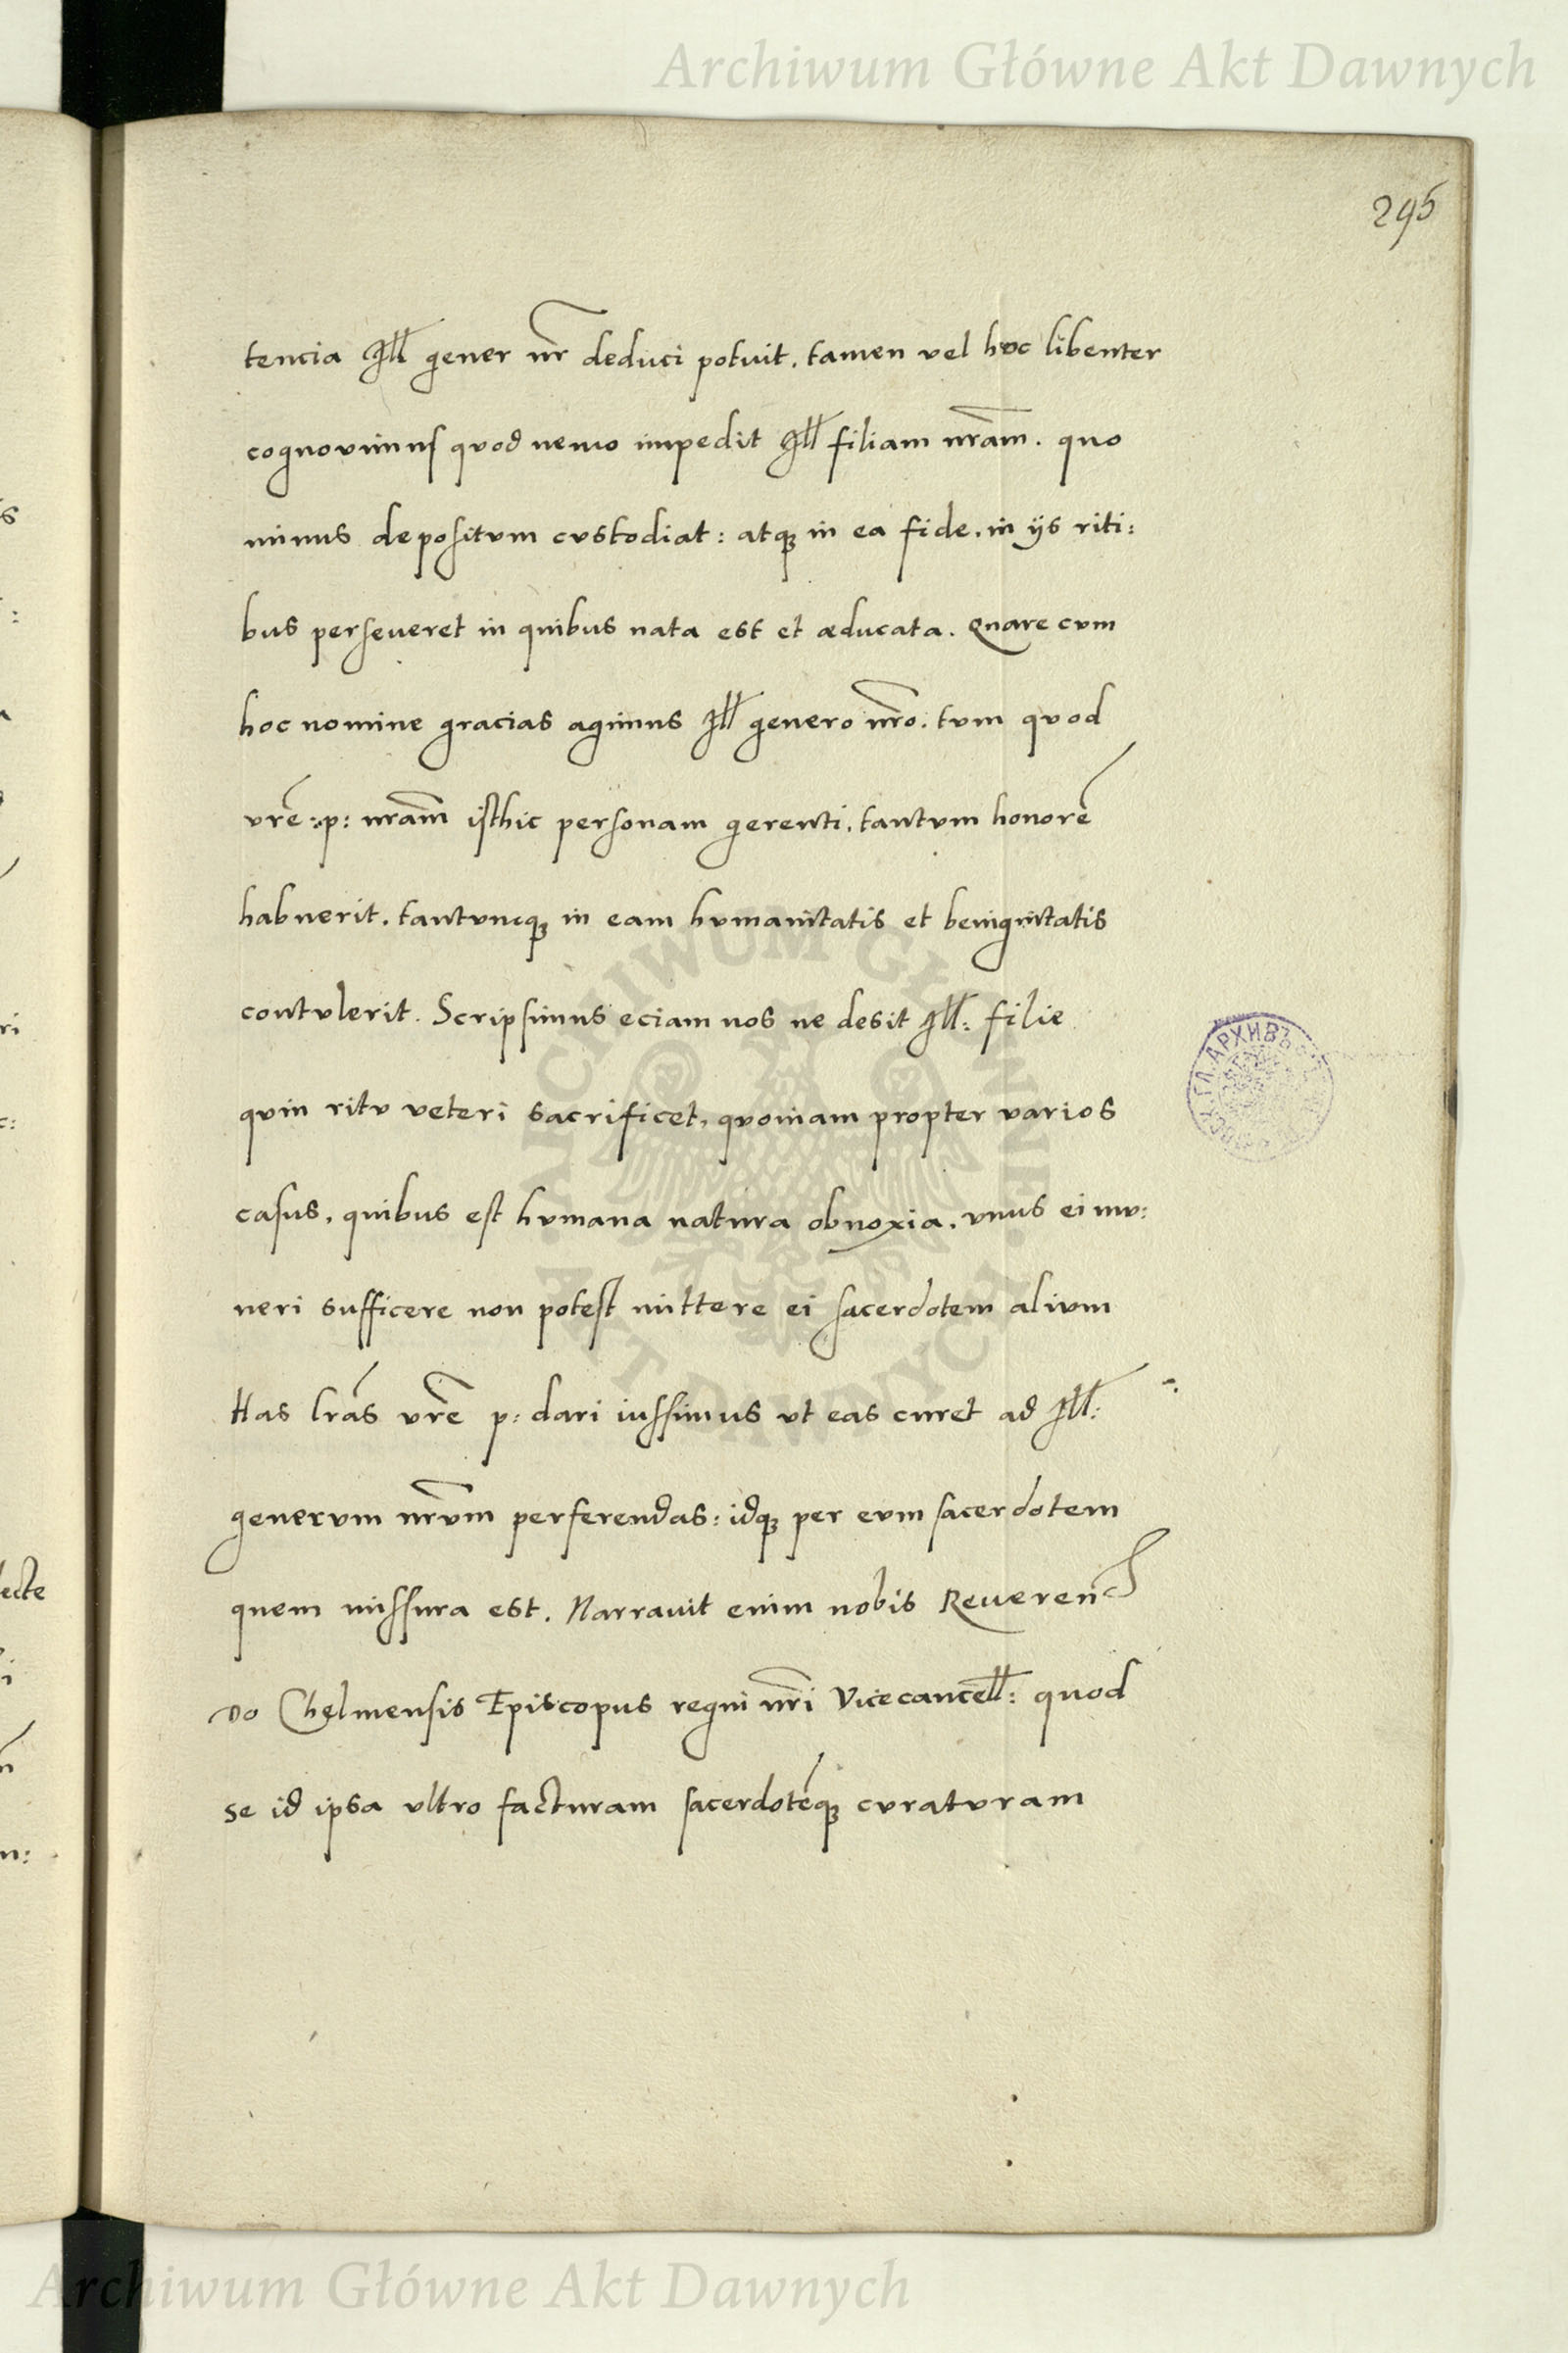 Archiwum Główne Akt Dawnych
295
tencia Ill gener nr deduci potuit, tamen vel hoc libenter
cognovimus quod nemo impedit Ill filiam nram. quo
minus depositum custodiat: atq; in ea fide, in ijs riti:
bus perseueret in quibus nata est et æducata. Quare cum
hoc nomine gracias agimus Ill genero nro. tum quod
vre: p: nram isthic personam gerenti, tantum honorē
habuerit, tantumq; in eam humanitatis et benignitatis
contulerit. Scripsimus eciam nos ne desit Ill: filie
quin ritu veteri sacrificet, quoniam propter varios
casus, quibus est humana natura obnoxia, vnus ei mu:
neri sufficere non potest mittere ei sacerdotem alium
Has lras vre p: dari iussimus vt eas curet ad Ill:
generum nrum perferendas: idq; per eum sacerdotem
quem missura est. Narrauit enim nobis Reueren
do Chelmensis Episcopus regni nri Vicecancell: quod
se id ipsa vltro facturam sacerdotēq; curaturam
ARCHIWUM GŁÓWNE
AKT DAWNYCH
АРХИВЪ
Archiwum Główne Akt Dawnych